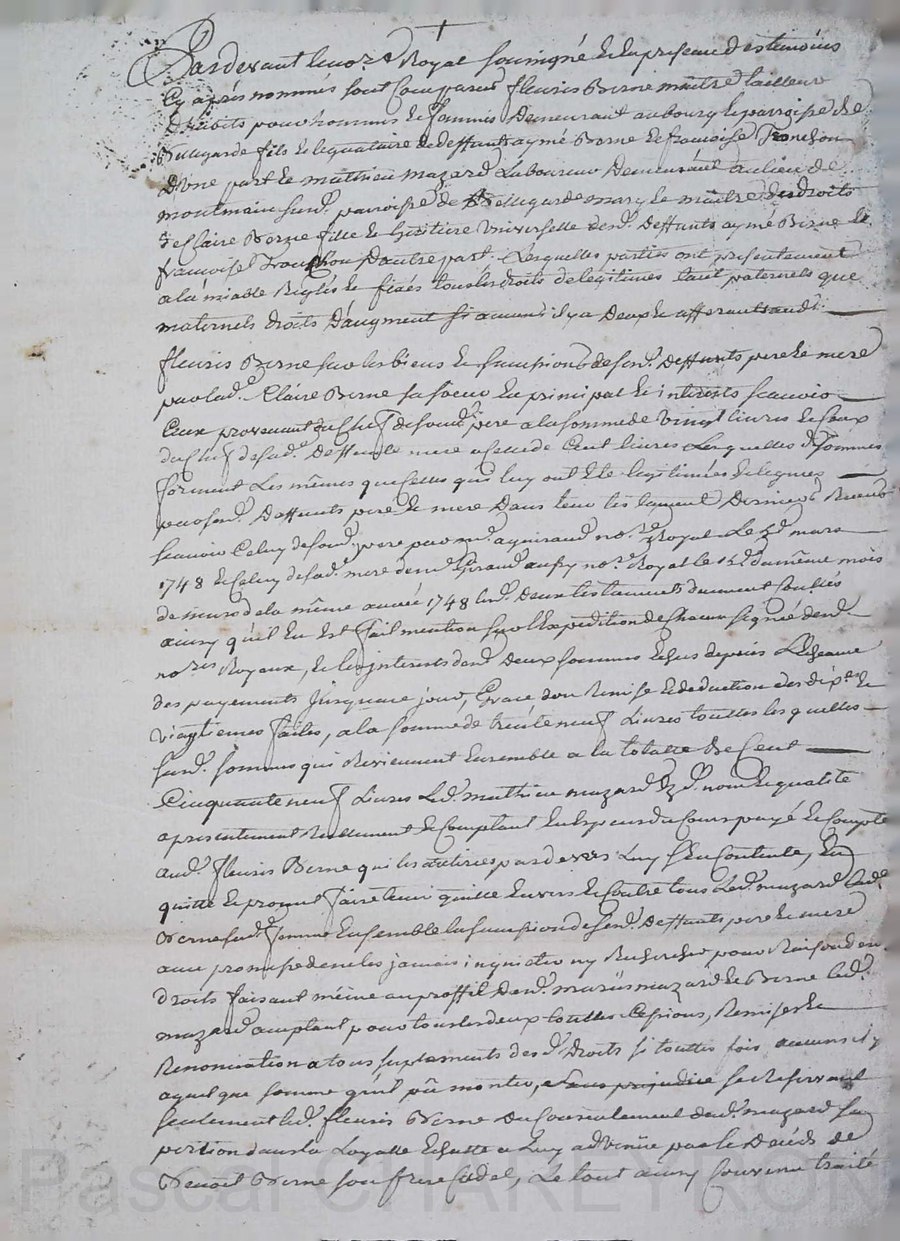 Pardevant le no.re Royal soussigné & en presence des temoins
Cy après nommés sont Comparus fleuris Berne maître tailleur
D'habits pour hommes & femmes Demeurant au bourg & parroisse de
Bellegarde fils & legataire de deffunts aymé Berne & françoise Tronchon
D'une part & mathieu mazard Laboureur Demeurant au lieu de
montmain sur.d parroisse de Bellegarde mary & maître des droits
de Claire Berne fille & heritiere Universelle desd. Deffunts aymé Berne &
françoise Tronchon D'autre part. Lesquelles parties ont presentement
a la miable Reglés & fixés tous les droits de legitimes tant paternels que
maternels droits D'augment si aucuns il y a Deux & afferants aud.
fleuris Berne sur les biens & successions de sesd. Deffunts pere & mere
par lad. Claire Berne sa soeur en principal & interests scauoir
Ceux provenant du Chef de sond. pere a la somme de vingt livres & Ceux
du Chef de sad. Deffunte mere a Celle de Cent livres Lesquelles sommes
forment Les mêmes que Celles qui luy ont eté legitimées & leguées
par sesd. Deffunts pere & mere Dans leur testament Derniers Receus
scauoir Celuy de sond. pere par me. aguiraud no.re Royal Le mars
1748 & Celuy de sad. mere de me. Giraud aussy no.re Royal le du même mois
de mars de la même année 1748 lesd. Deux testaments duement Controllés
ainsy qu'il En Est fait mention sur l'Expedition de chacun signée desd.
no.res Royaux, & les interests desd. Deux sommes Echus depuis L'Echeance
des payements Jusqu'a ce jour, Grace don Remise & deduction des dix.es &
vingtiemes faites, a la somme de trente neuf Livres touttes lesquelles
susd. sommes qui Reviennent Ensemble a la totalle De Cent
Cinquante neuf Livres Led. mathieu mazard nom & qualité
a presentement Reellement & Comptant En Especes du Cours payé & Compté
aud. fleuris Berne qui les a retirées pardevers Luy s'En Contente, En
quitte & promet faire tenir quitte Envers & Contre tous Led. mazard lad.
Berne sa femme Ensemble la succession desd. Deffunts pere & mere
avec promesse de ne les jamais inquieter ny Rechercher pour Raison desd.
droits faisant même au proffit Desd. mariés mazard & Berne led.
mazard acceptant pour tous les deux touttes Cessions, Remises &
Renonciation a tous suplements desd. Droits si touttes fois aucuns il y
a quel que somme qu'il pû monter, sans prejudice se Reservant
seulement led. fleuris Berne Du Consentement dud. mazard sa
portion dans la Loyalle Echutte a Luy advenüe par le Deceds de
Benoit Berne son frere Cadet, Le tout ainsy Convenu traité
Pascal CHAREYRON